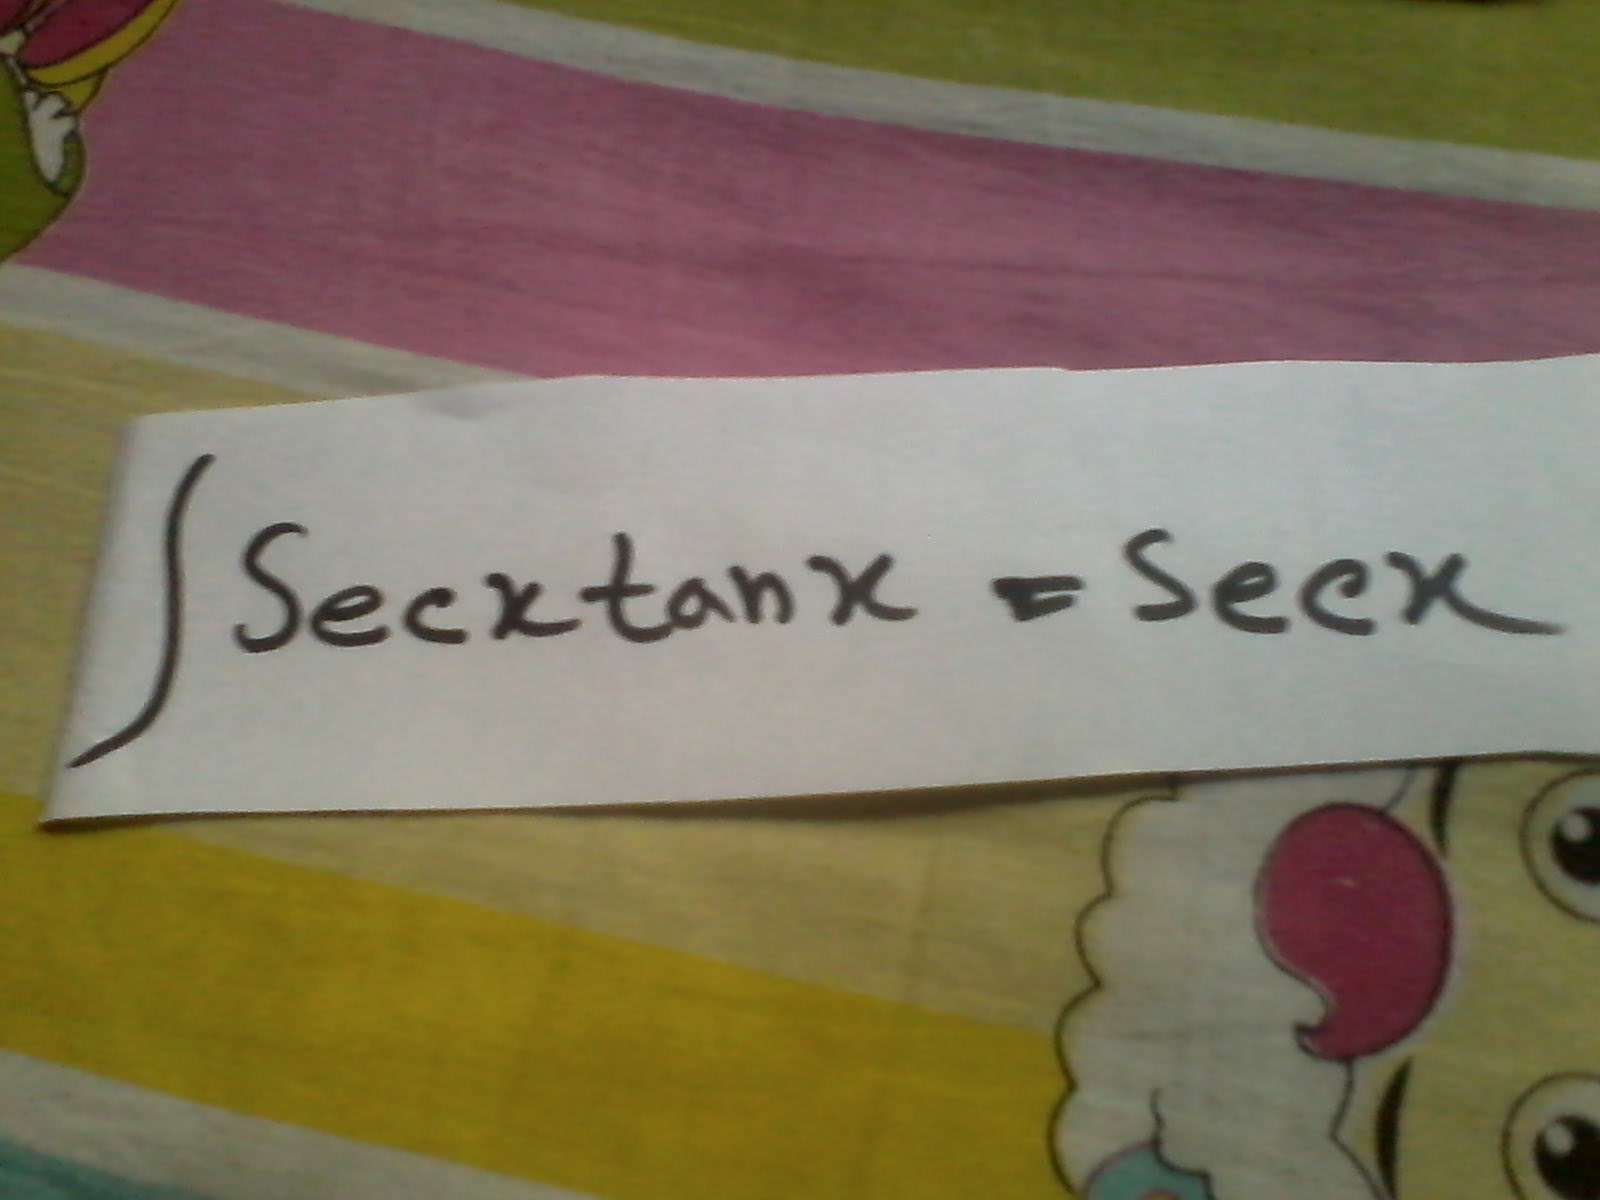 ∫ Secx tanx = Secx